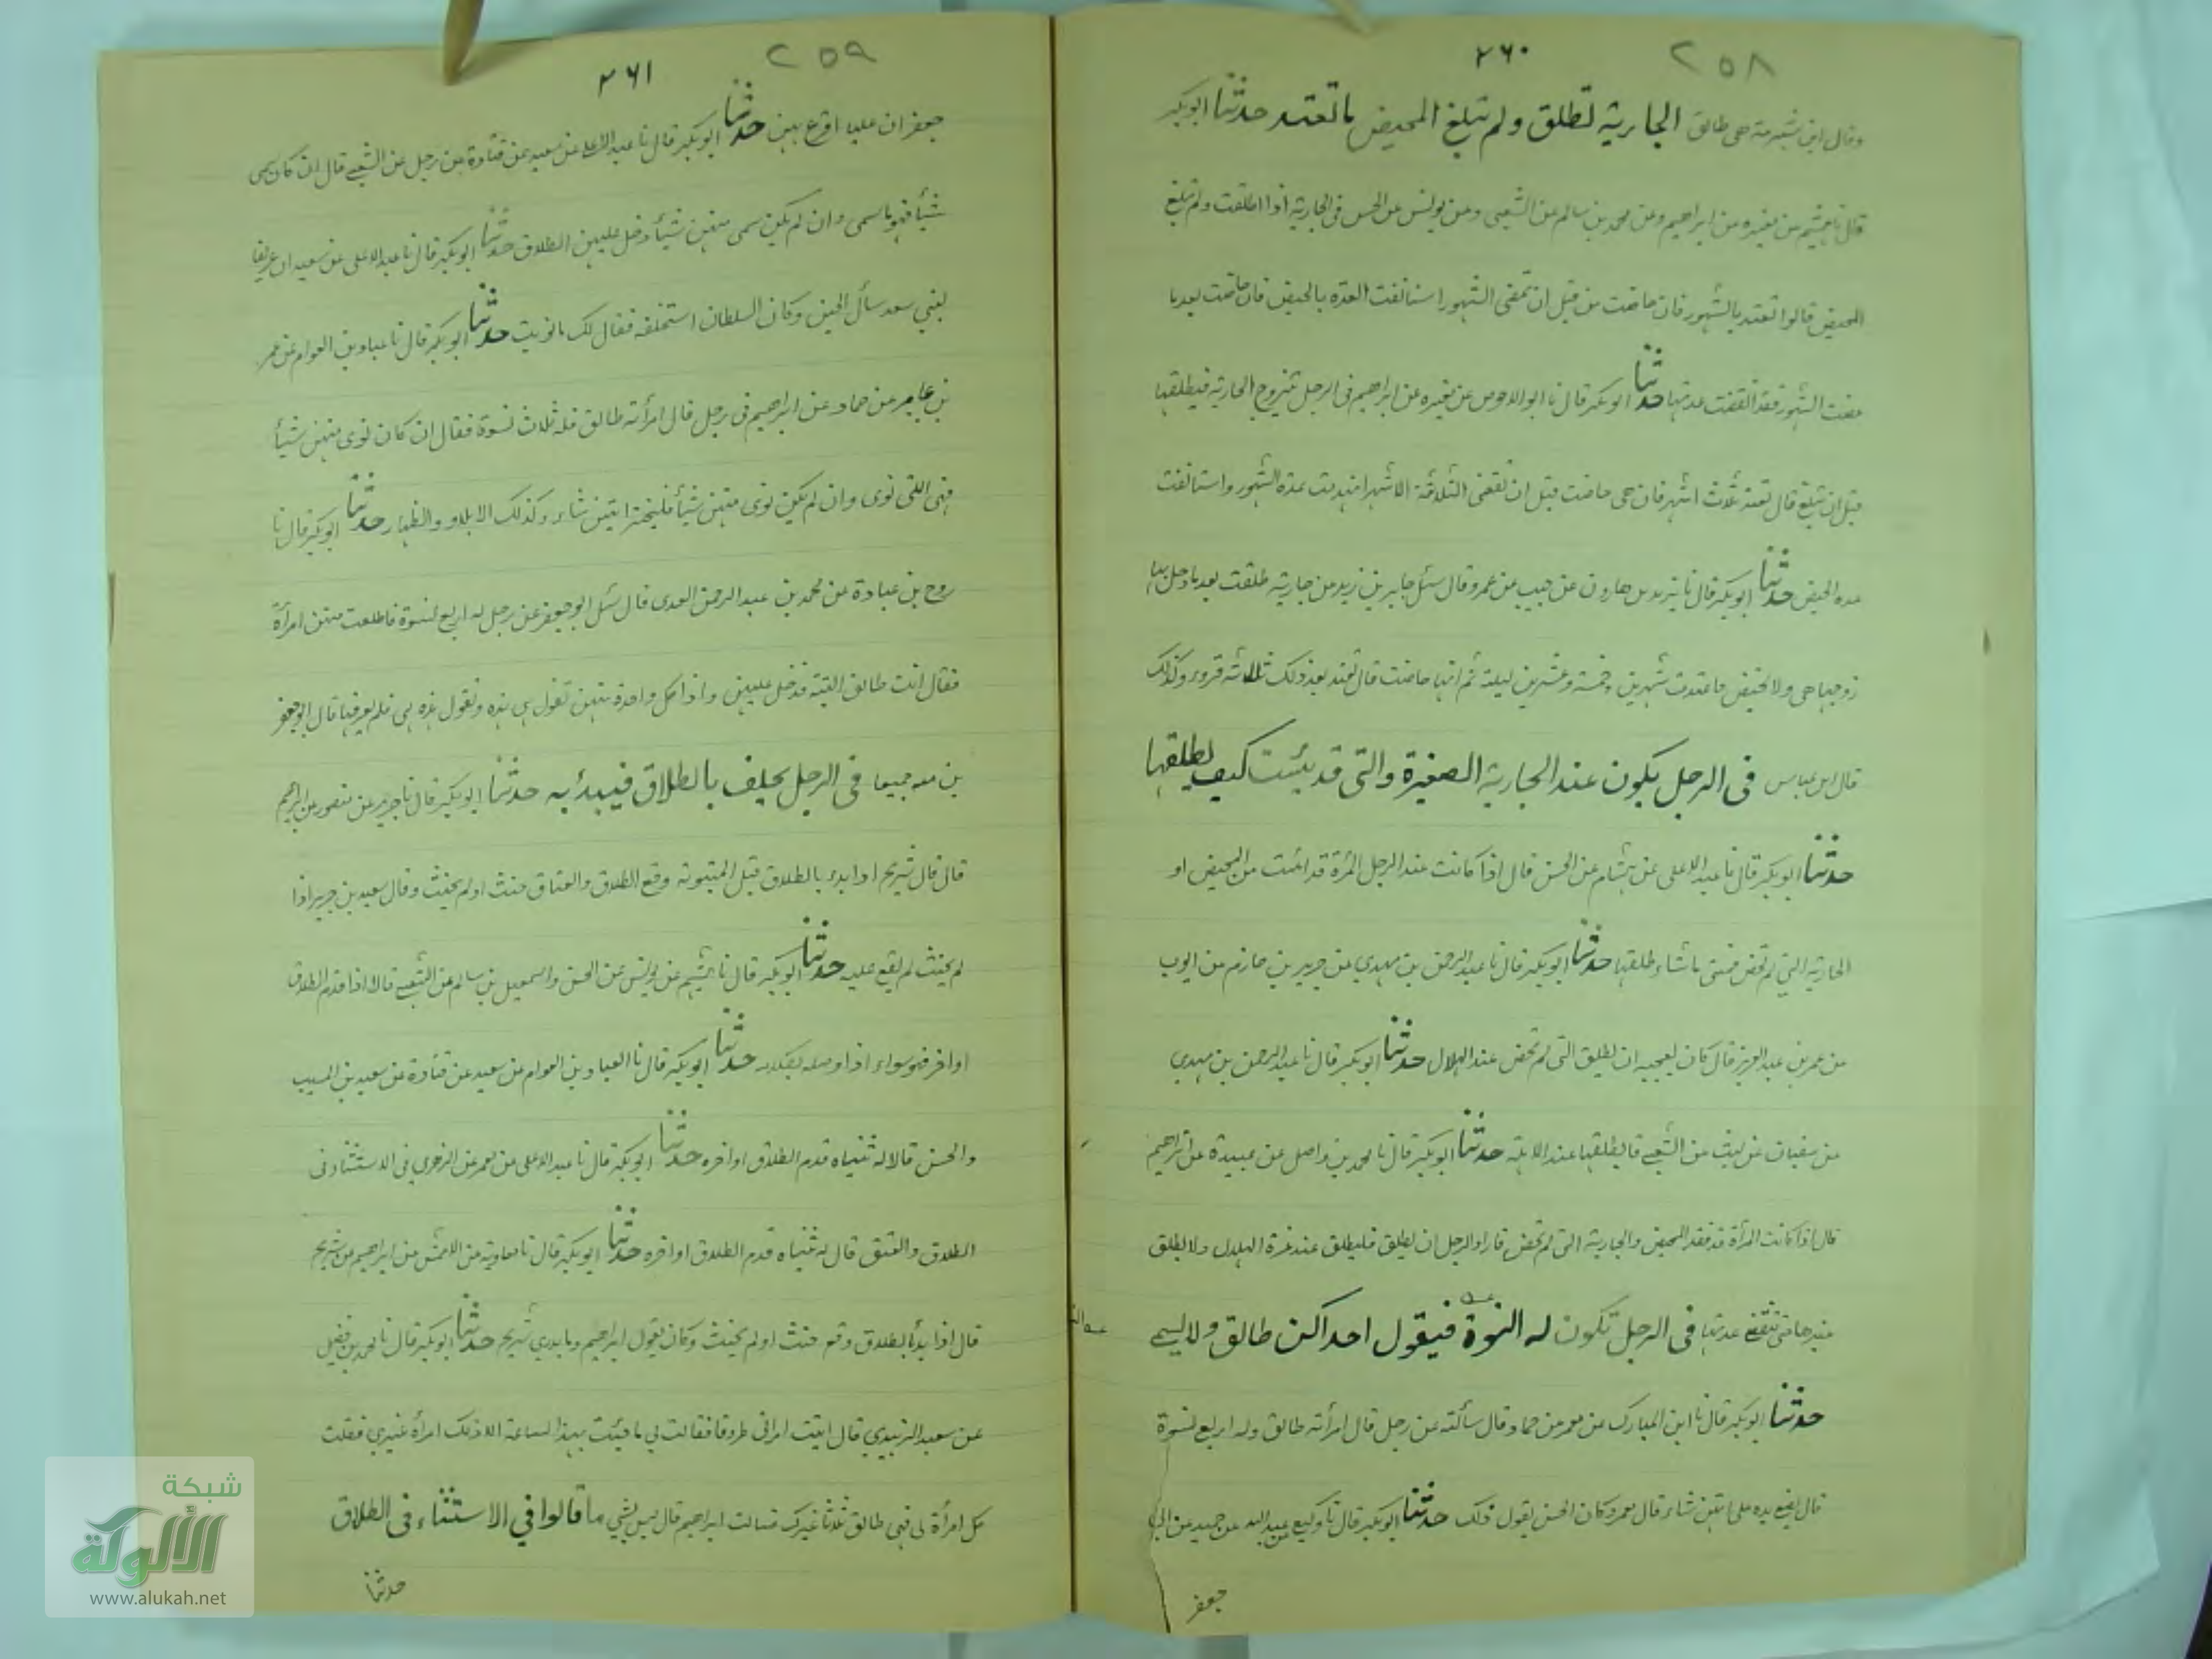 ٢٥٨ ٢٦٠
وقال ابن شبرمة هي طالق الجارية تطلق ولم تبلغ المحيض ما تعتد حدثنا ابوبكر
قال نا هشيم عن مغيره عن ابراهيم وعن محمد بن سالم عن الشعبى وعن يونس عن الحسن فى الجارية اذا طلقت ولم تبلغ
المحيض قالوا تعتد بالشهور فان حاضت من قبل ان تمضى الشهور استانفت العدة بالحيض فان حاضت بعد ما
مضت الشهور فقد انقضت عدتها حدثنا ابوبكر قال نا ابو الاحوص عن مغيره عن ابراهيم فى الرجل تزوج الجارية فيطلقها
قبل ان تبلغ قال تعتد ثلاث اشهر فان هى حاضت قبل ان تقضى الثلاثة الاشهر انهدمت عدة الشهور واستانفت
عدة الحيض حدثنا ابوبكر قال نا يزيد بن هارون عن حبيب عن عمرو قال سئل جابر بن زيد عن جارية طلقت بعد ما دخل بها
زوجها هى ولا تحيض فاعتدت شهرين وخمسة وعشرين ليلة ثم انها حاضت قال تعتد بعد ذلك ثلاثة قروء وكذلك
قال ابن عباس فى الرجل يكون عند الجارية الصغيرة والتى قد يئست كيف يطلقها
حدثنا ابوبكر قال نا عبد الاعلى عن هشام عن الحسن قال اذا كانت عند الرجل المرة قد ائست من المحيض او
الجارية التي لم تحض فمتى ما شاء طلقها حدثنا ابوبكر قال نا عبد الرحمن بن مهدي عن جرير بن حازم عن ايوب
عن عمر بن عبد العزيز قال كان يعجبه ان يطلق التى لم تحض عند الهلال حدثنا ابوبكر قال نا عبد الرحمن بن مهدي
عن سفيان عن ليث عن الشعبى قال يطلقها عند الاهلة حدثنا ابوبكر قال نا محمد بن واصل عن عبيدة عن ابراهيم
قال اذا كانت المرأة قد فقد المحيض والجارية التى لم تحض فاراد الرجل ان يطلق فليطلق عند غرة الهلال ولا يطلق
غيرها حتى تنقضى عدتها فى الرجل تكون له النسوة فيقول احداكن طالق ولا يسمى
حدثنا ابوبكر قال نا ابن المبارك عن معمر عن حماد قال سألته عن رجل قال امرأته طالق وله اربع نسوة
قال يضع يده على ايتهن شاء قال معمر وكان الحسن يقول ذلك حدثنا ابوبكر قال نا وكيع عن عبد الله عن حميد عن ابى
جعفر
٢٥٩ ٢٦١
جعفر ان عليا اقرع بينهن حدثنا ابوبكر قال نا عبد الاعلى عن سعيد عن قتادة عن رجل عن الشعبى قال ان كان سمى
شيأ فهو ما سمى وان لم يكن سمى منهن شيأ دخل عليهن الطلاق حدثنا ابوبكر قال نا عبد الاعلى عن سعيد ان عريفا
لبني سعد سأل الحسن وكان السلطان استحلفه فقال لك ما نويت حدثنا ابوبكر قال نا عباد بن العوام عن عمر
بن عامر عن حماد عن ابراهيم فى رجل قال امرأته طالق فله ثلاث نسوة فقال ان كان نوى منهن شيأ
فهى التى نوى وان لم يكن نوى منهن شيأ فليختر ايتهن شاء وكذلك الايلاء والظهار حدثنا ابوبكر قال نا
روح بن عبادة عن محمد بن عبد الرحمن العدى قال سئل ابو جعفر عن رجل له اربع نسوة فاطلعت منهن امرأة
فقال انت طالق البتة فدخل عليهن واذا كل واحدة منهن تقول هى هذه وتقول هذه هى فلم يعرفها قال ابو جعفر
بن معه جميعا فى الرجل يحلف بالطلاق فيبدأ به حدثنا ابوبكر قال نا جرير عن منصور عن ابراهيم
قال قال شريح اذا بدء بالطلاق قبل المثنوية وقع الطلاق والعتاق حنث او لم يحنث وقال سعيد بن جبير اذا
لم يحنث لم يقع عليه حدثنا ابوبكر قال نا هشيم عن يونس عن الحسن واسمعيل بن سالم عن الشعبى قالا اذا قدم الطلاق
او اخر فهو سواء اذا وصله بكلامه حدثنا ابوبكر قال نا العباد بن العوام عن سعيد عن قتادة عن سعيد بن المسيب
والحسن قالا له ثنياه قدم الطلاق او اخره حدثنا ابوبكر قال نا عبد الاعلى عن معمر عن الزهري فى الاستثناء فى
الطلاق والعتق قال له ثنياه قدم الطلاق او اخره حدثنا ابوبكر قال نا معاوية عن الاعمش عن ابراهيم عن شريح
قال اذا بدأ بالطلاق وقع حنث او لم يحنث وكان يقول ابراهيم وما يدري شريح حدثنا ابوبكر قال نا محمد بن فضيل
عن سعيد الزبيدي قال اتيت امراتى طروقا فقالت لي ما جئت بهذا الساعة الا ولك امرأة غيري فقلت
كل امرأة لى فهى طالق ثلاثا غيرك فسالت ابراهيم قال ليس بشئ ما قالوا في الاستثناء فى الطلاق
حدثنا
شبكة
الألوكة
www.alukah.net